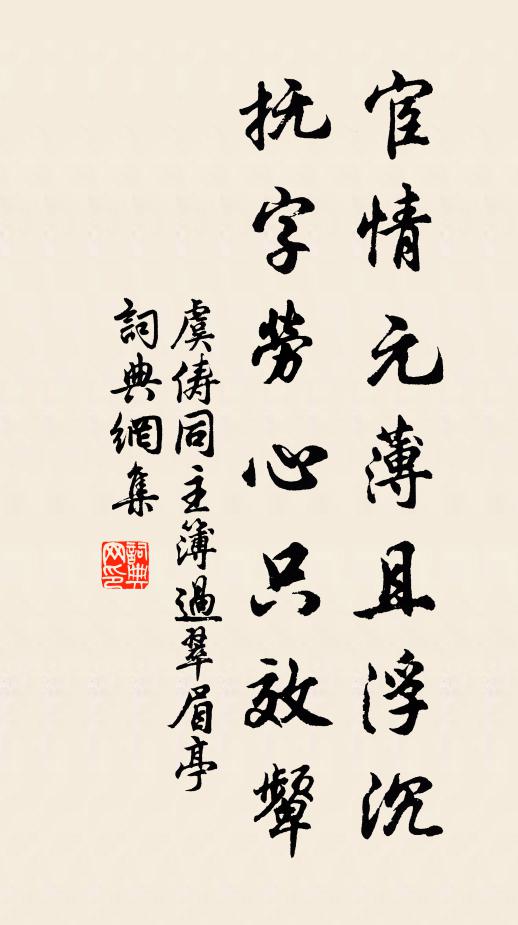 宦情元薄且浮沉
抚字勞心只效顰
虞俦同主簿過翠眉亭
詞典網集
詞典网印